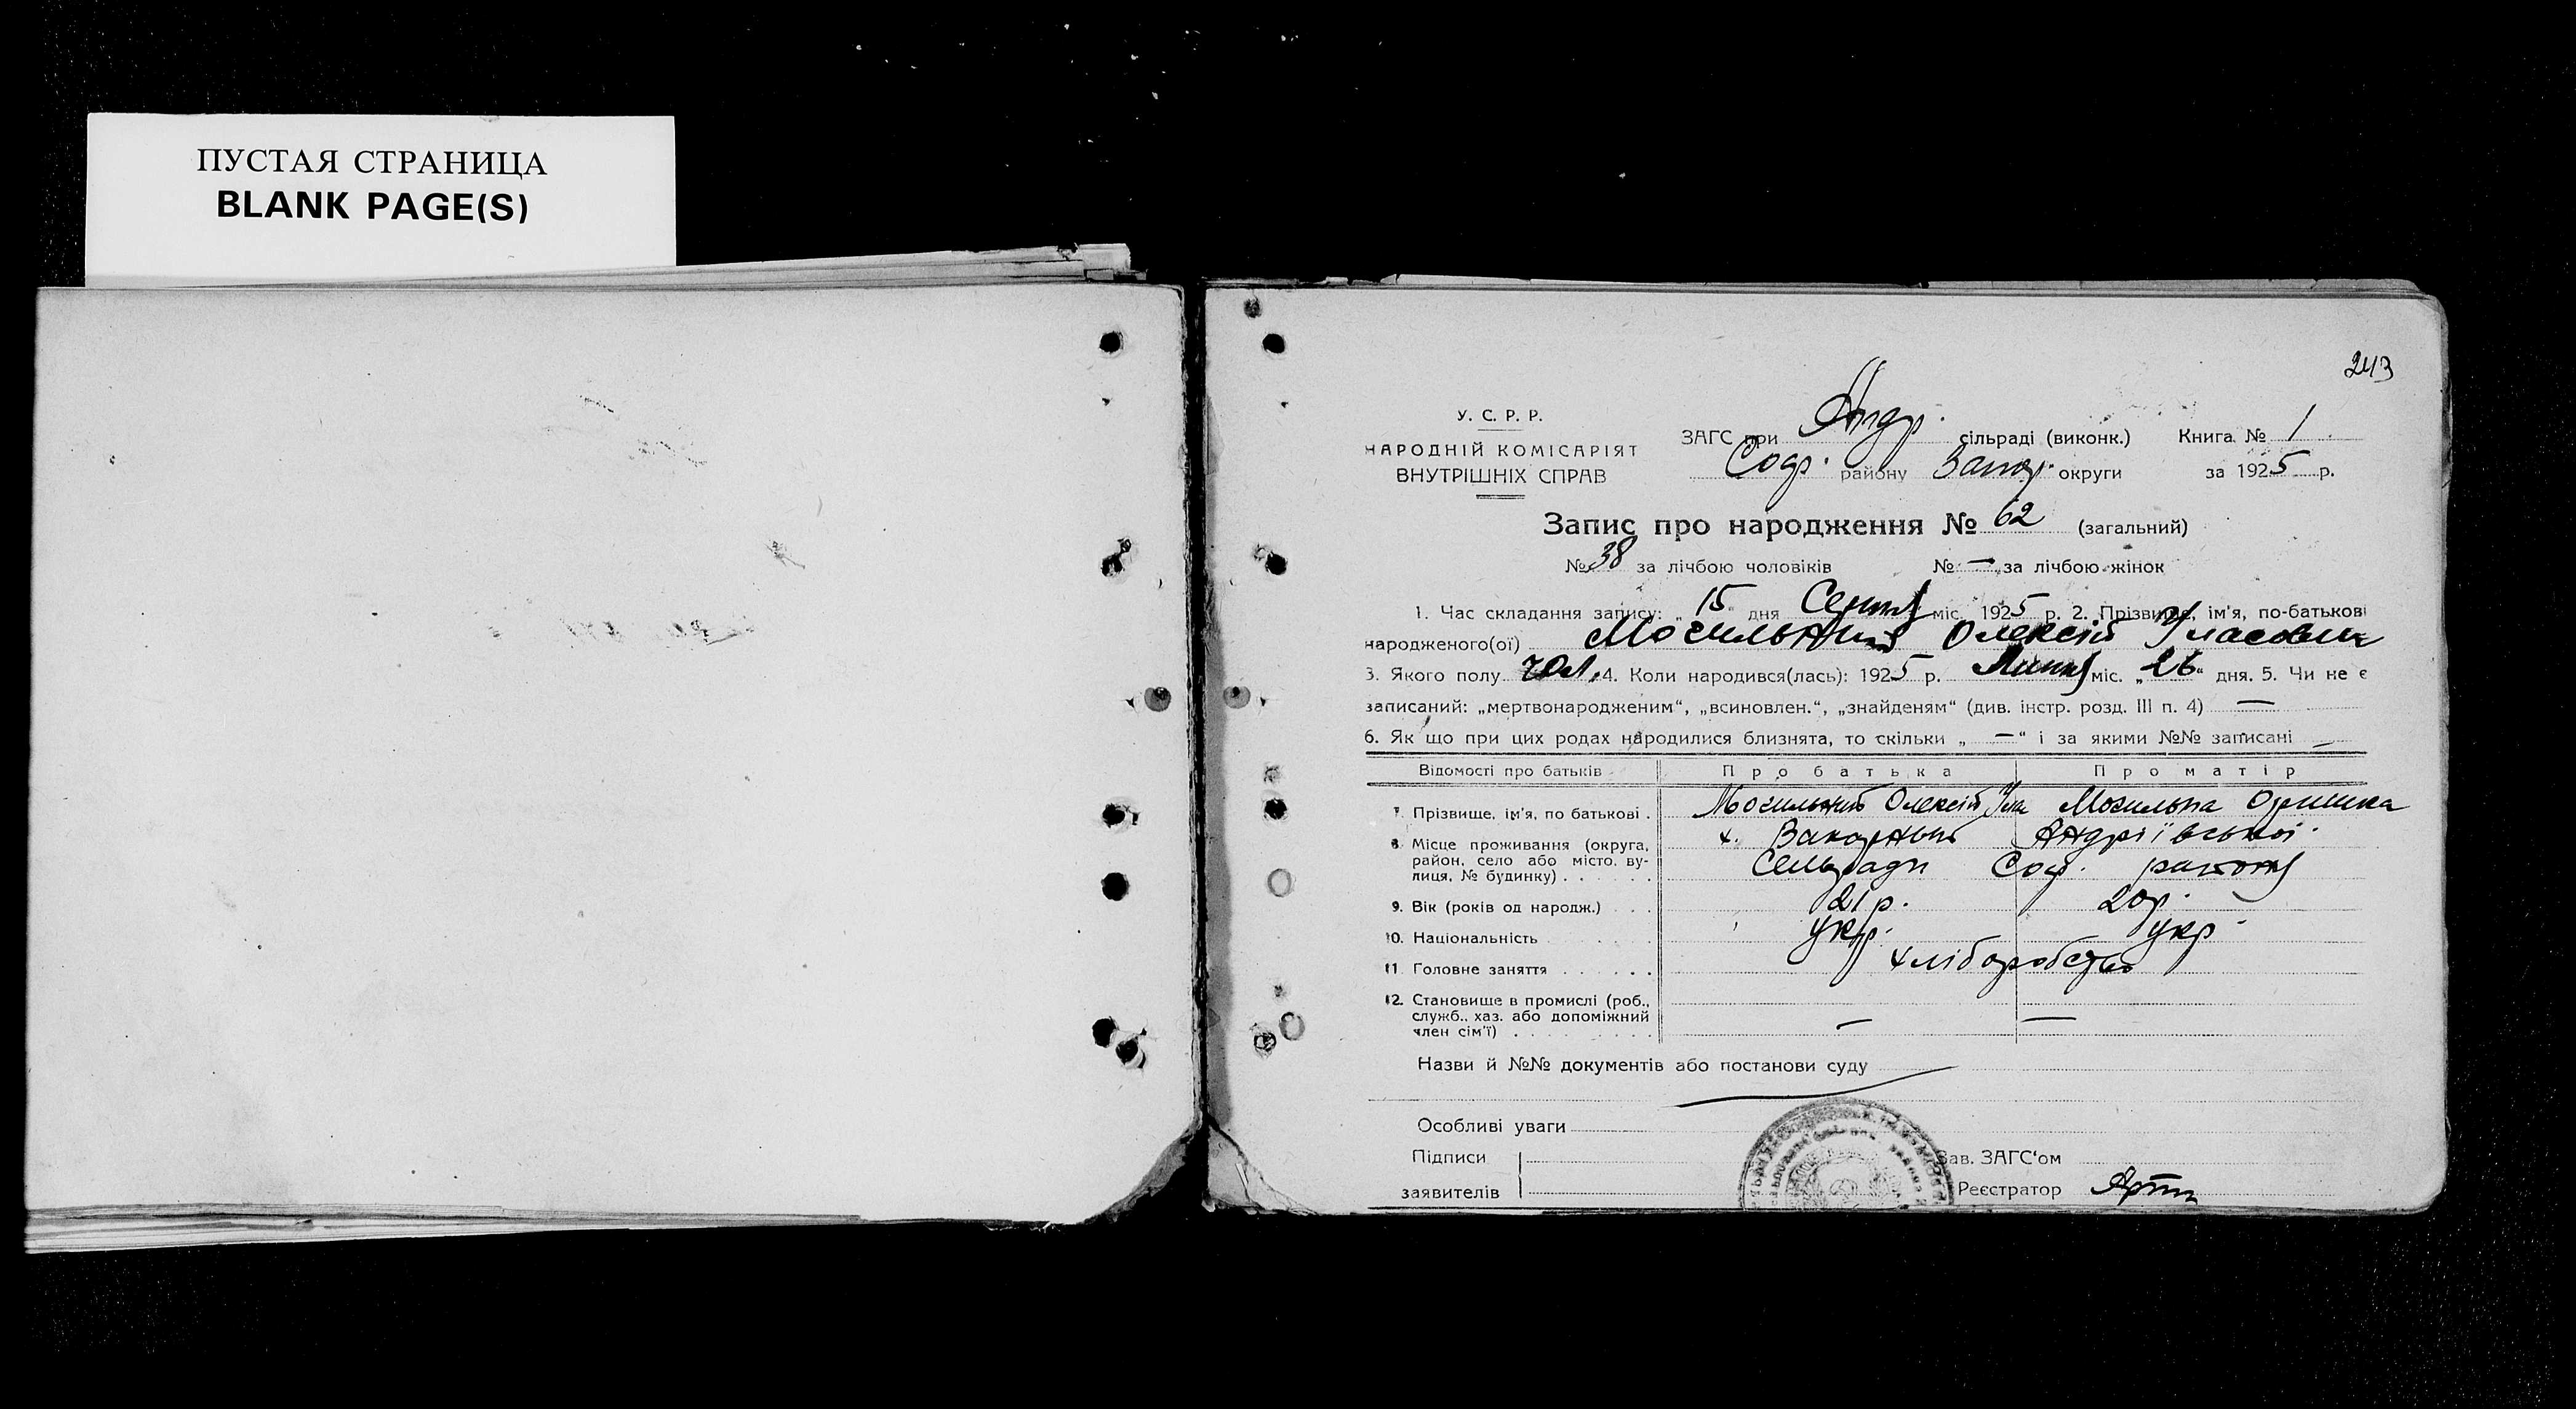 ПУСТАЯ СТРАНИЦА
BLANK PAGE(S)
243
У. С. Р. Р.
НАРОДНІЙ КОМІСАРІЯТ
ВНУТРІШНІХ СПРАВ
ЗАГС при Андр. сільраді (виконк.) Книга № 1
Соф. району Запор. округи за 1925 р.
Запис про народження № 62 (загальний)
№ 38 за лічбою чоловіків № — за лічбою жінок
1. Час складання запису: „ 15 дня міс. 1925 р. 2. Прізвище, ім'я, по-батькові
народженого(ої) Могильний Олексій Уласович
3. Якого полу чол. 4. Коли народився(лась): 1925 р. Липня міс. „26“ дня. 5. Чи не є
записаний: „мертвонародженим“, „всиновлен.“, „знайденям“ (див. інстр. розд. III п. 4) —
6. Як що при цих родах народилися близнята, то скільки „ — “ і за якими №№ записані —
Відомості про батьків Про батька Про матір
7. Прізвище, ім'я, по батькові . Могильний Олексій Ула Могильна Оришка
8. Місце проживання (округа, х. Андріївської
район, село або місто, ву- Сельради Соф. району
лиця, № будинку) . . . . . .
9. Вік (років од народж.) . . . 21 р. 20 р.
10. Національність . . . . . . укр. укр.
11. Головне заняття . . . . . . хліборобство
12. Становище в промислі (роб.,
служб., хаз. або допоміжний
член сім'ї) . . . . . . . . . — —
Назви й №№ документів або постанови суду
Особливі уваги
Підписи Зав. ЗАГС‘ом
заявителів Реєстратор